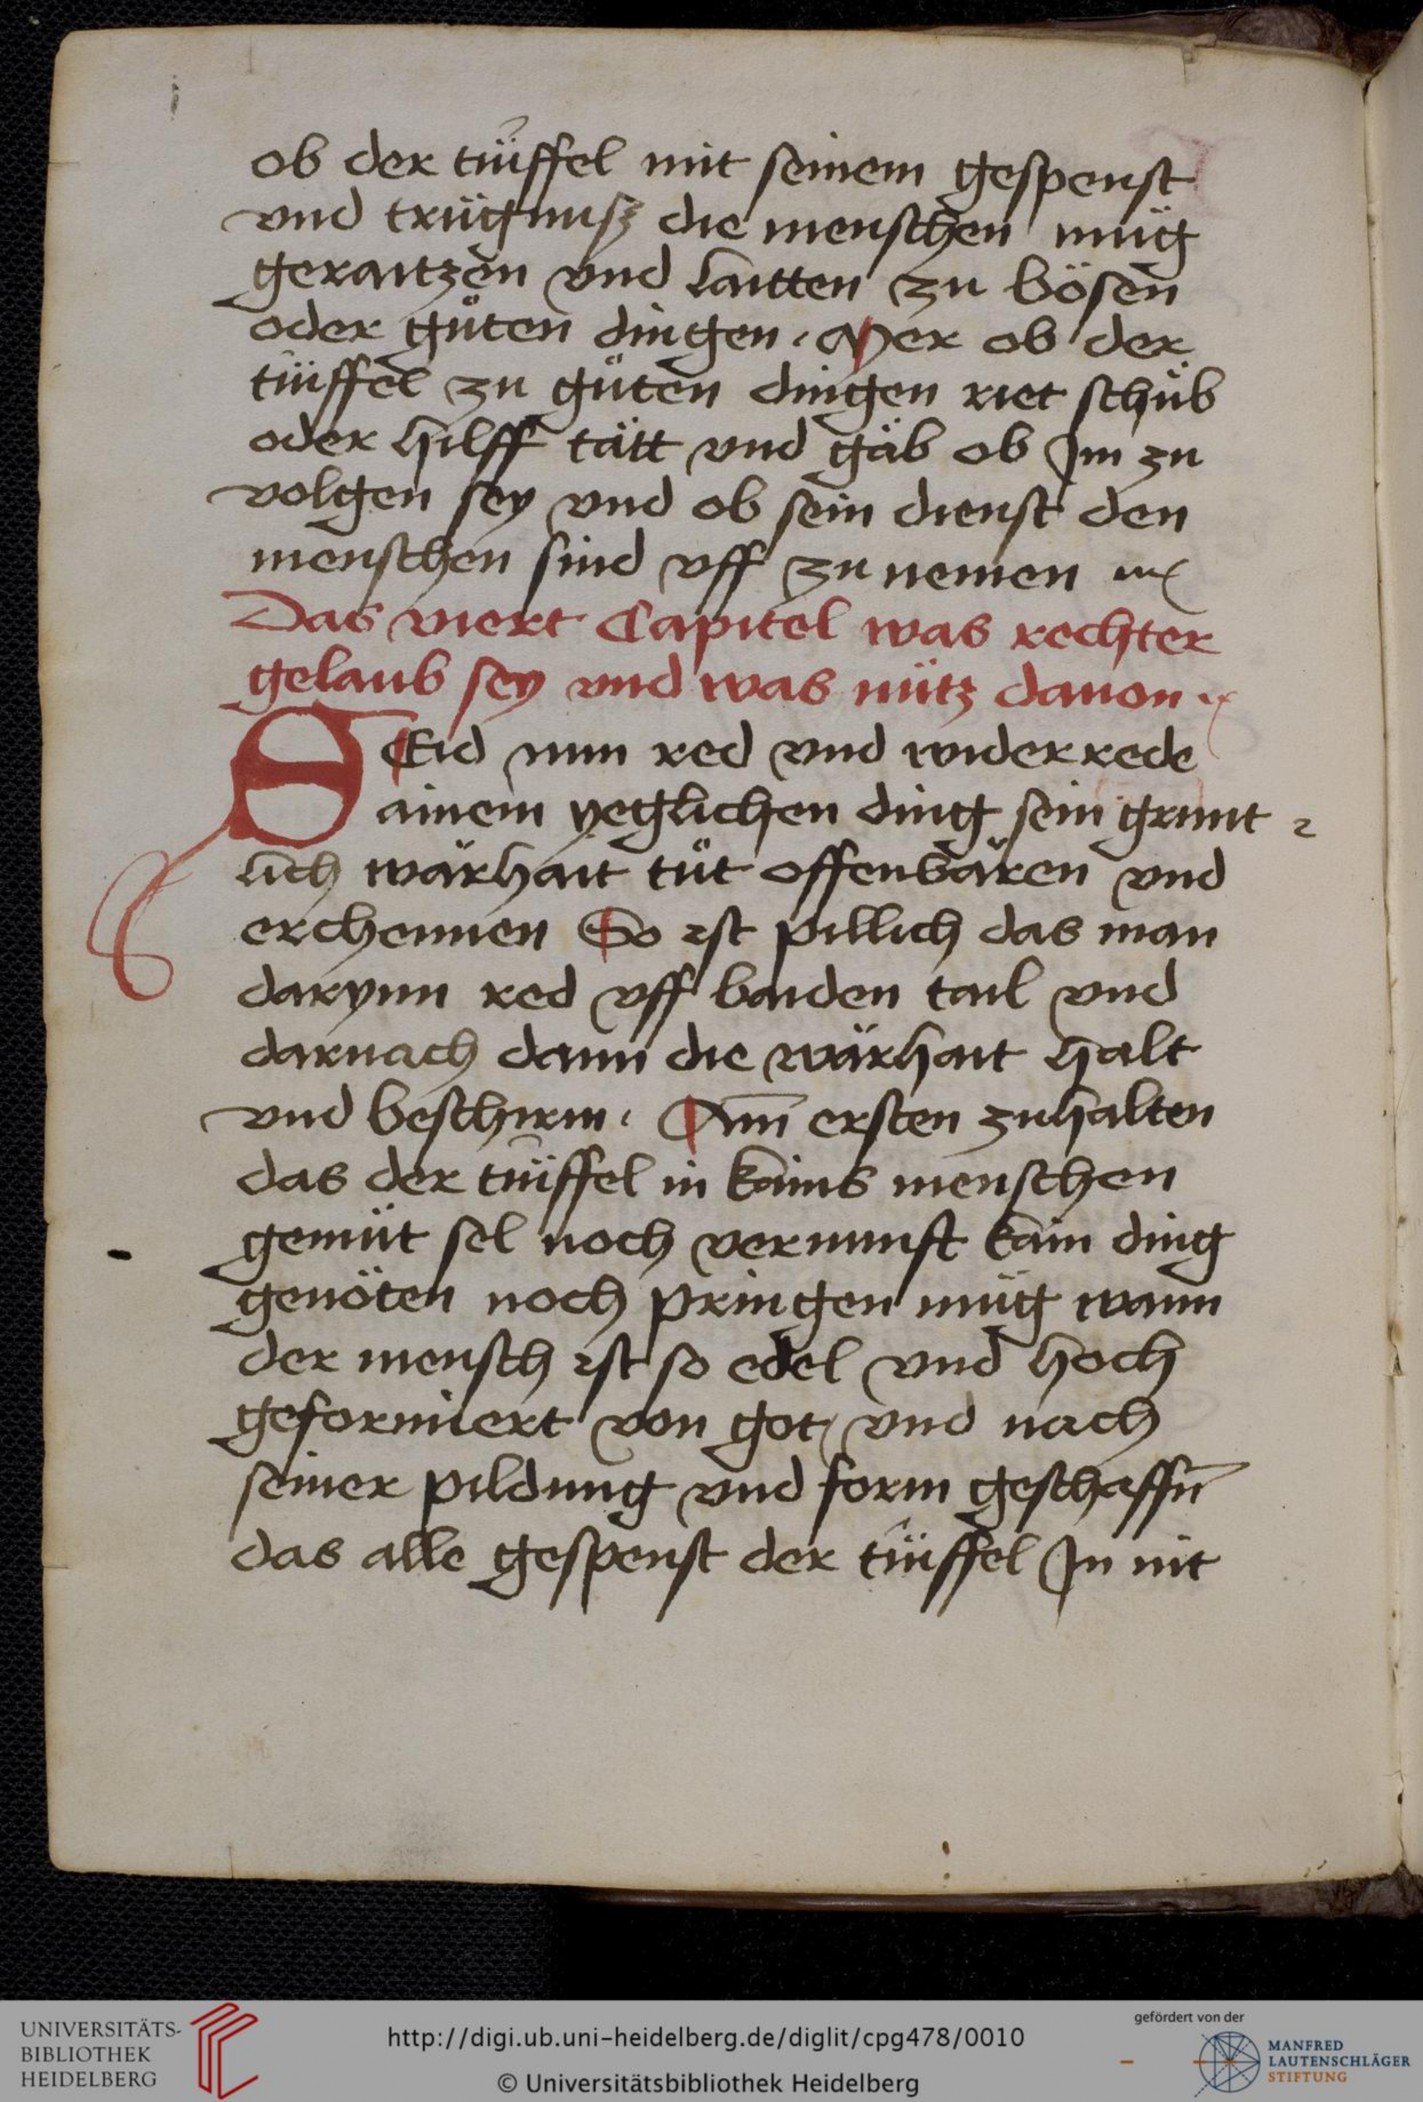 ob der tüffel mit seinem gespenst
vnd trügnusz die menschen müg
geraitzen vnd laitten zu bösen
oder güten dingen. Aber ob der
tüffel zu güten dingen riet schüb
oder hilff tätt vnd gäb ob Im zu
volgen sey vnd ob sein dienst den
menschen sind vff zu nemen
Das viert Capitel was rechter
gelaub sey vnd was nütz dauon
SEid nun red vnd widerrede
ainem yeglichen ding sein grunt
lich wärhait tüt offenbären vnd
erchennen So ist pillich das man
darynn red vff baiden tail vnd
darnach dann die wärhait halt
vnd beschirm. Am̄ ersten zuhalten
das der tüffel in kains menschen
gemüt sel noch vernunft kain ding
genöten noch pringen müg wann
der mensch ist so edel vnd hoch
geformiert von got / vnd nach
seiner pildung vnd form geschaffn̄
das alle gespenst der tüffel In nit
UNIVERSITÄTS-
BIBLIOTHEK
HEIDELBERG
http://digi.ub.uni-heidelberg.de/diglit/cpg478/0010
© Universitätsbibliothek Heidelberg
gefördert von der
MANFRED
LAUTENSCHLÄGER
STIFTUNG